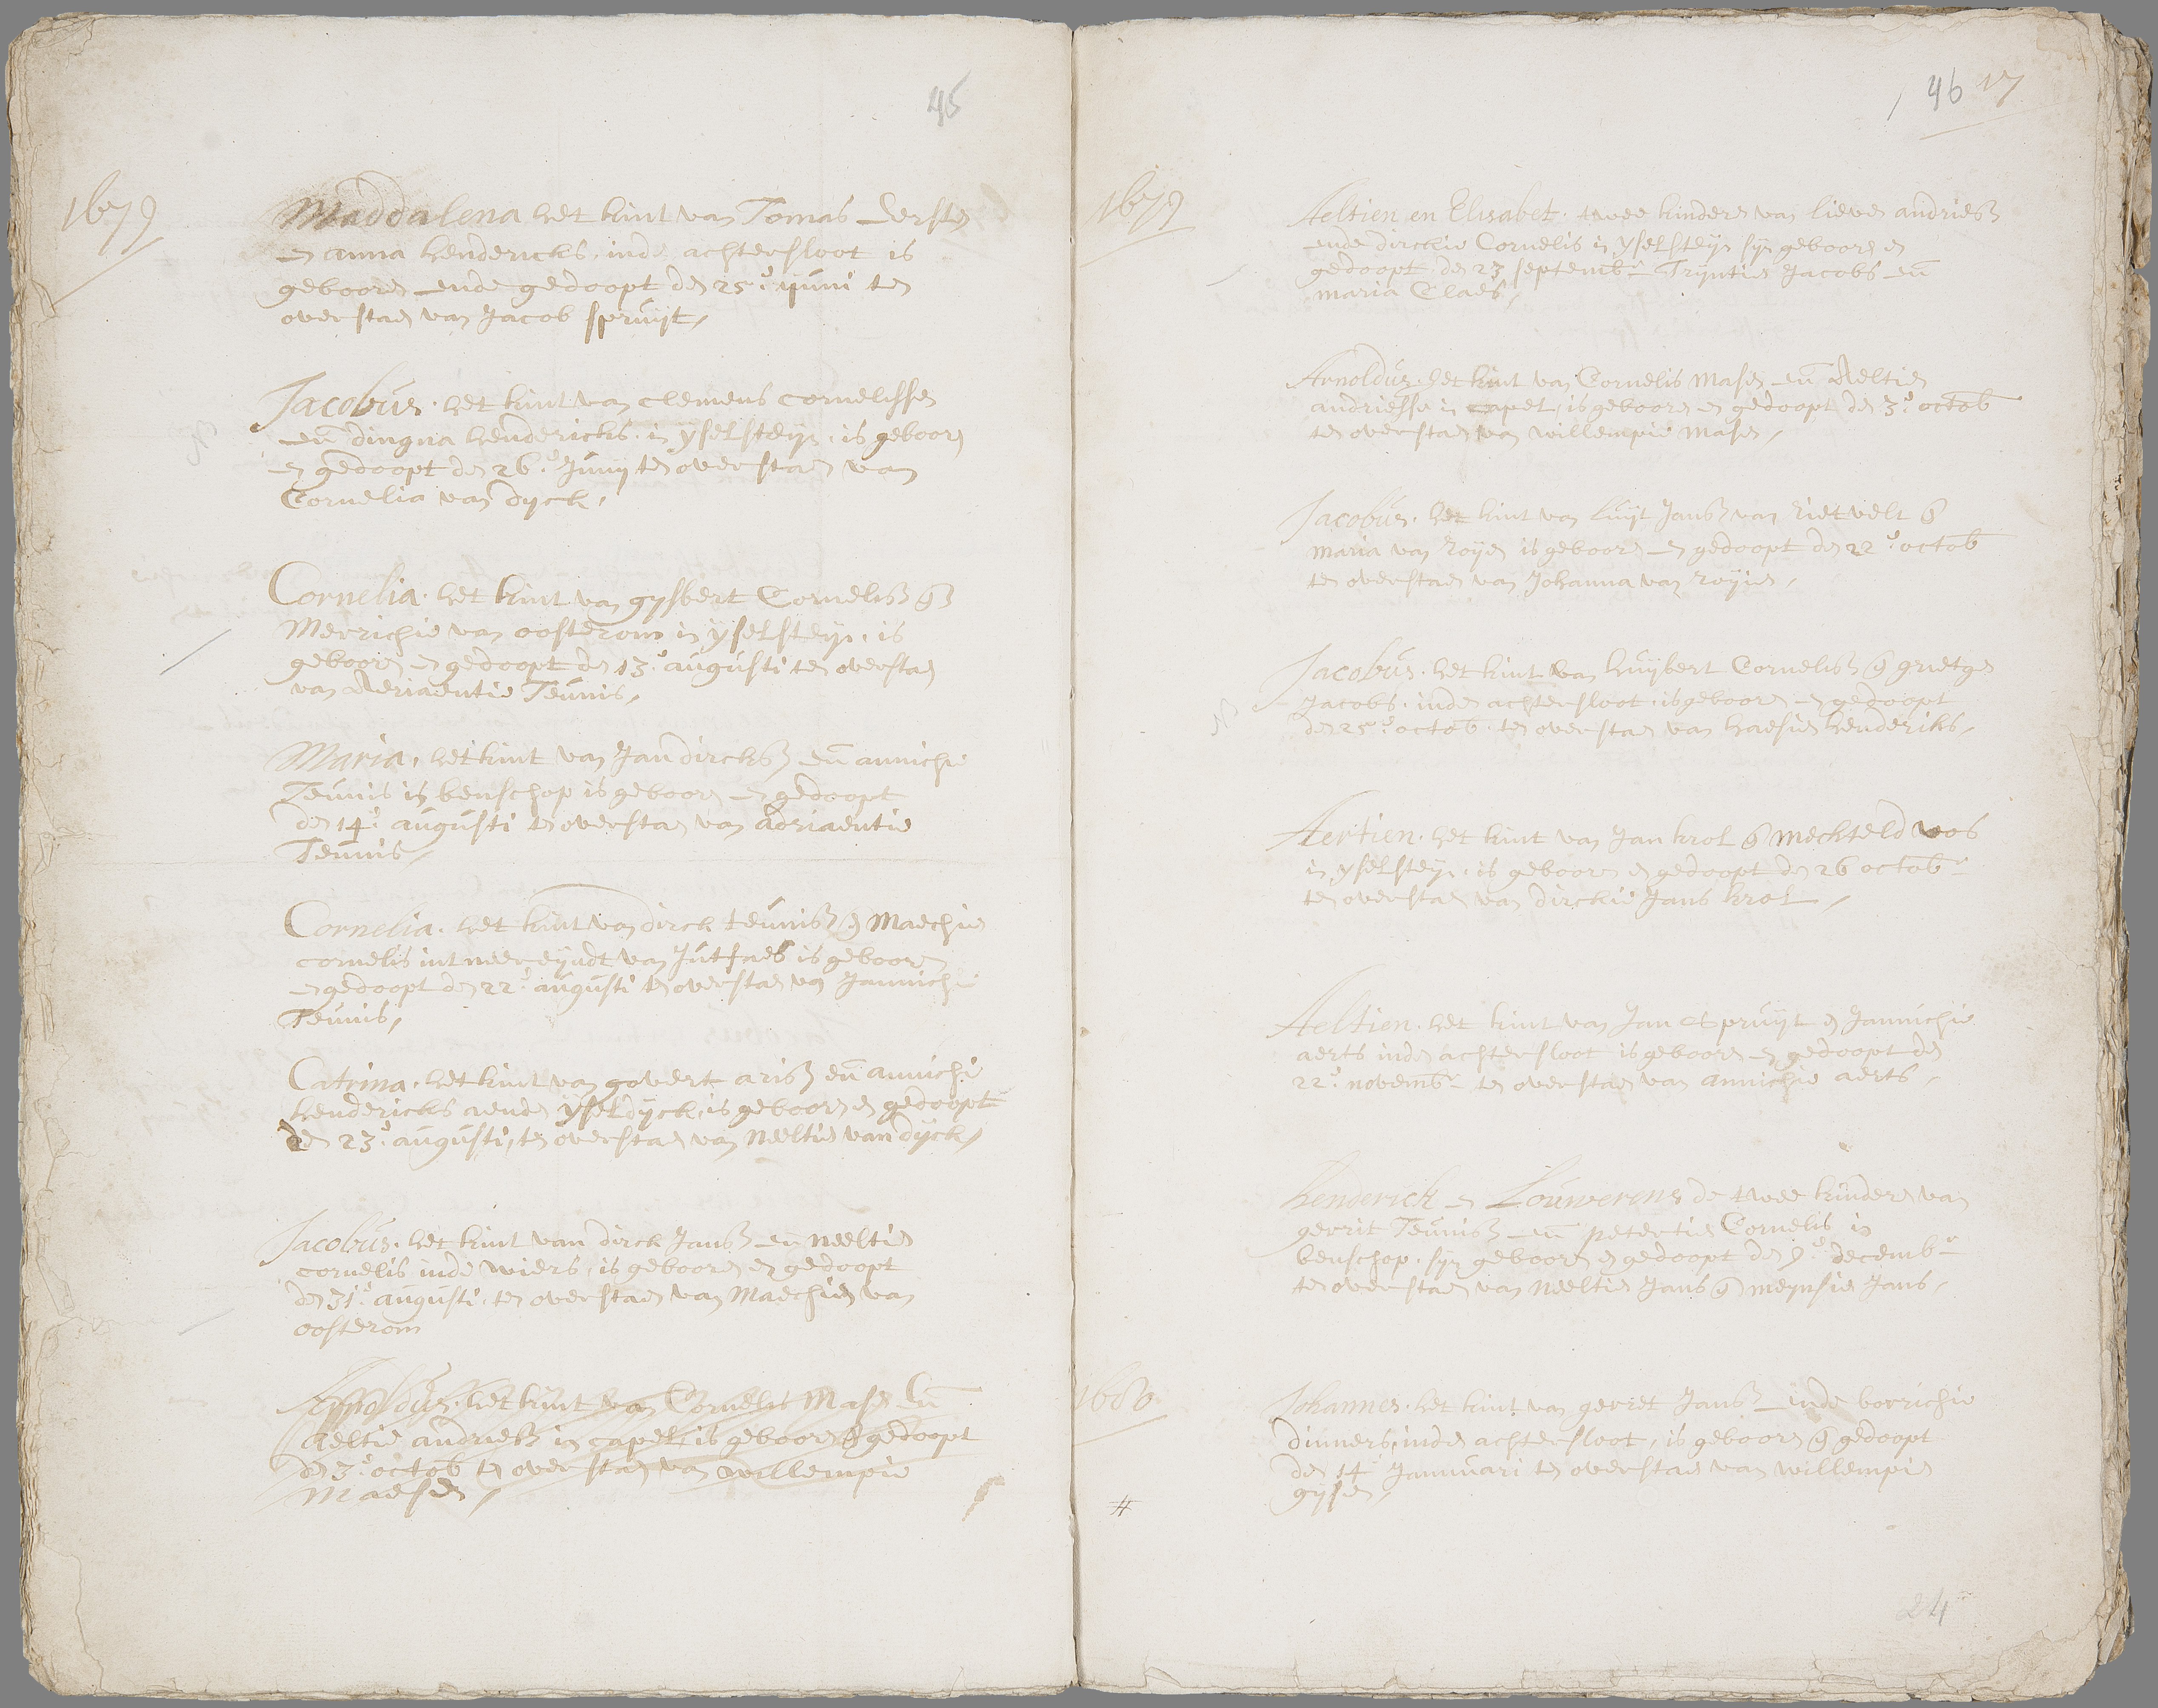 45
1679
Maddalena het kint van Tomas Eersten
en anna hendericks, inde achtersloot is
geboore ende gedoopt den 25e iuni ten
overstaen van Jacob spruijt,
Jacobus. het kint van clemens cornelissen
en dingna hendericks. in ysselsteyn. is geboore
en gedoopt den 26e Junij ten overstaen van
Cornelia van dyck,
Cornelia. het kint van gysbert Cornelisz en
Merrichie van oosterom in ysselsteyn. is
geboore en gedoopt den 13e augusti ten oversta
van Aeriaentie Teunis,
Maria, het kint van Jan dircksz en annichie
Teunis in benschop is geboore en gedoopt
den 14e augusti ten oversta van adriaentie
Teunis,
Cornelia. het kint van dirck teunisz en Maechie
cornelis int neereyndt van Jutfaes is geboore
en gedoopt den 22e augusti ten oversta van Jannichie
Teunis,
Catrina. het kint van govert arisz en annichie
hendericks aende ysseldyck, is geboore en gedoopt
den 23e augusti, ten oversta van Neeltie van dyck,
Jacobus. het kint van dirck Jansz en neeltie
cornelis inde wiers, is geboore en gedoopt
den 31e augusti. ten overstaen van Maechie van
oosterom
het kint van Cornelis Masen En
aeltie andriesz in capel, is geboore en gedoopt
den 3e octob ten oversta van willempie
Maesen,
46 17
1679
Aeltien en Elisabet. twee kinderen van lieven andriesz
ende dirckie Cornelis in ysselsteyn syn geboore en
gedoopt, den 23 septembr Tryntie Jacobs en
maria Claes,
Arnoldus. het kint van Cornelis Masen en Aeltie
andriesse in capel, is geboore en gedoopt den 3e octob
ten oversta van willempie Masen,
Jacobus. het kint van luijt Jansz van rietvelt en
maria van royen is geboore en gedoopt den 22e octob
ten oversta van Johanna van royen,
Jacobus. het kint van huijbert Cornelisz en grietge
Jacobs. inde achtersloot. is geboore en gedoopt
den 25e octob. ten oversta van haesie henderiks,
Aertien. het kint van Jan krol en mechteld vos
in ysselsteyn. is geboore en gedoopt den 26 octobr
ten oversta van dirckie Jans krol,
Aeltien. het kint van Jan Spruijt en Jannichie
aerts inde achtersloot is geboore en gedoopt den
22e novembr ten overstaen van annichie aerts,
henderick en Louwerens de twee kindere van
gerrit Teunisz en petertie Cornelis in
benschop. syn geboore en gedoopt den 9e decembr
ten oversta van neeltie Jans en meynsie Jans,
1680
Johannes. het kint van gerret Jansz ende borrichie
dinners, inde achtersloot, is geboore en gedoopt
den 14e Januuari ten overstaen van willempie
gysen,
#
24